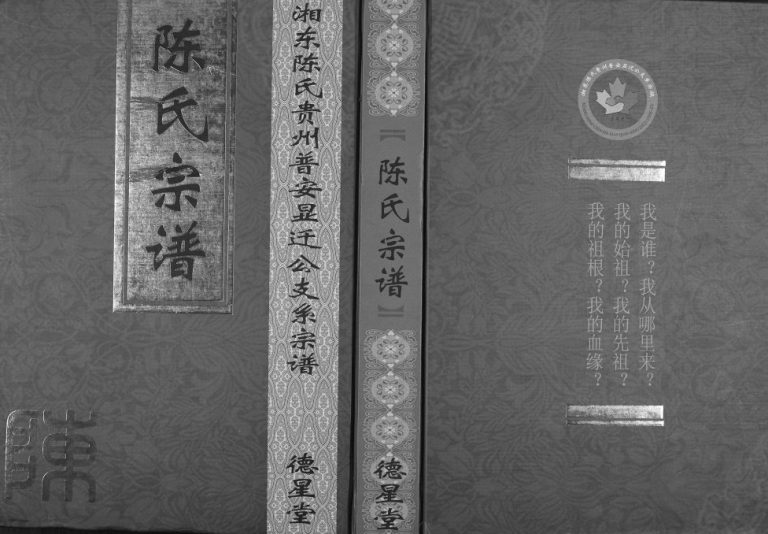 陈氏宗谱
湘东陈氏贵州普安显迁公支系宗谱
德星堂
【陈氏宗谱】
德星堂
我是谁？我从哪里来？
我的始祖？我的先祖？
我的祖根？我的血缘？
陳